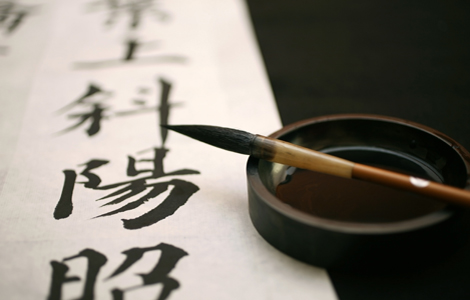 上斜陽照